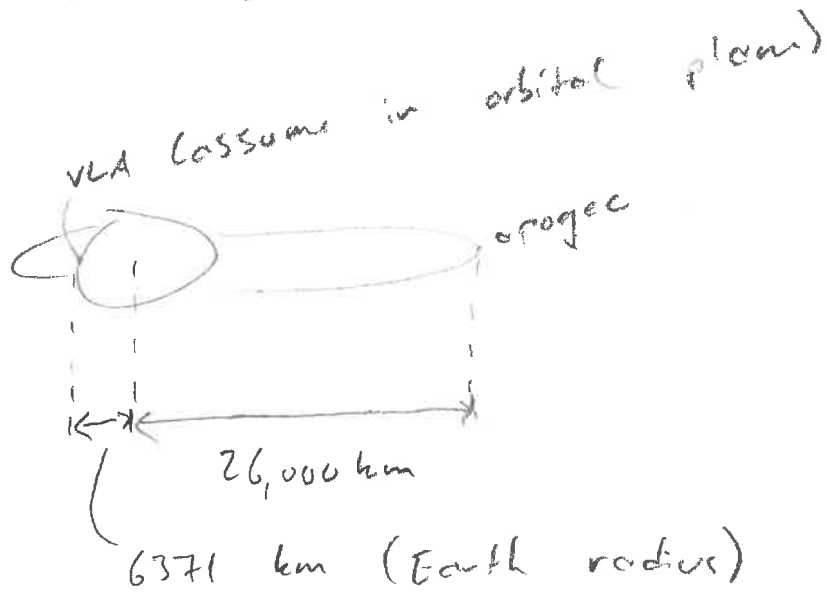 VLA (assume in orbital plane)
apogee
26,000 km
6371 km (Earth radius)